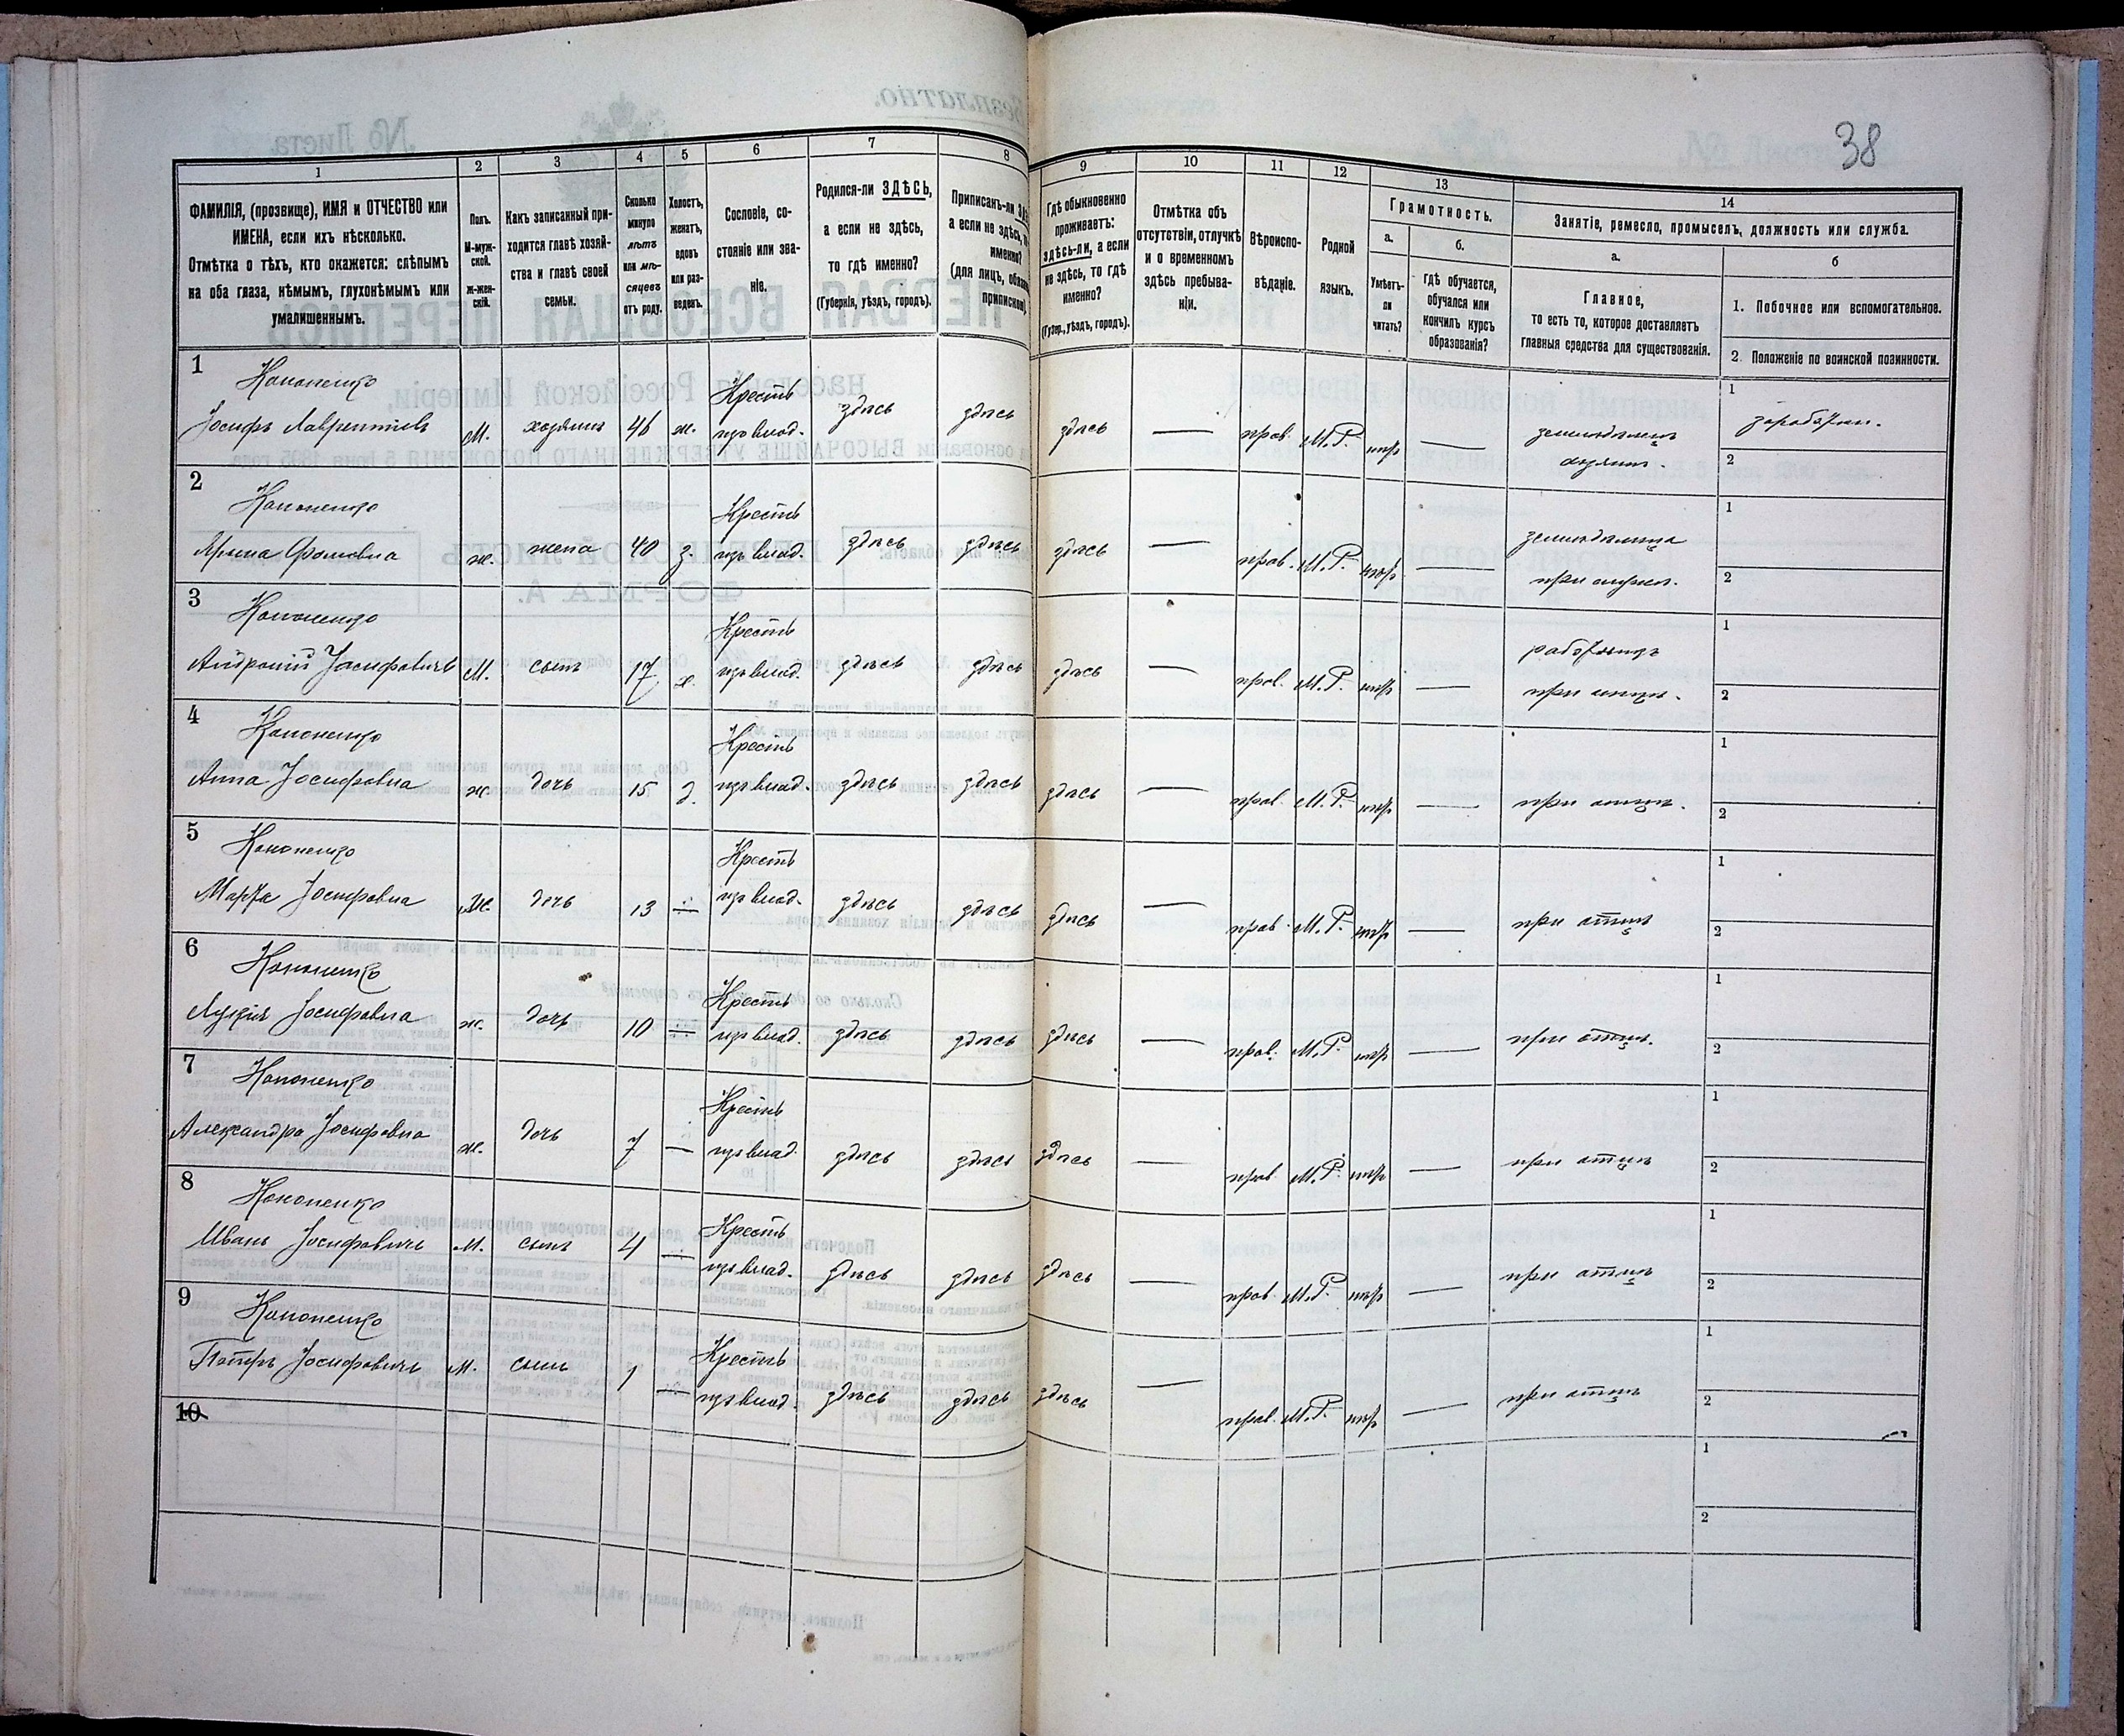 38
1
2
3
4
5
6
7
8
9
10
11
12
13
14
ФАМИЛІЯ, (прозвище), ИМЯ и ОТЧЕСТВО или
ИМЕНА, если ихъ нѣсколько.
Отмѣтка о тѣхъ, кто окажется: слѣпымъ
на оба глаза, нѣмымъ, глухонѣмымъ или
умалишеннымъ.
Полъ.
М-муж-
ской.
ж-жен-
скій.
Какъ записанный при-
ходится главѣ хозяй-
ства и главѣ своей
семьи.
Сколько
минуло
лѣтъ
или мѣ-
сяцевъ
отъ роду.
Холостъ,
женатъ,
вдовъ
или раз-
веденъ.
Сословіе, со-
стояніе или зва-
ніе.
Родился-ли ЗДѢСЬ,
а если не здѣсь,
то гдѣ именно?
(Губернія, уѣздъ, городъ).
Приписанъ-ли
а если не здѣсь,
именно?
(для лицъ,
Гдѣ обыкновенно
проживаетъ:
здѣсь-ли, а если
не здѣсь, то гдѣ
именно?
(Губер., уѣздъ, городъ).
Отмѣтка объ
отсутствіи, отлучкѣ
и о временномъ
здѣсь пребыва-
ніи.
Вѣроиспо-
вѣданіе.
Родной
языкъ.
Грамотность.
а.
Умѣетъ-
ли
читать?
б.
Гдѣ обучается,
обучался или
кончилъ курсъ
образованія?
Занятіе, ремесло, промыселъ, должность или служба.
а.
Главное,
то есть то, которое доставляетъ
главныя средства для существованія.
б
1. Побочное или вспомогательное.
2. Положеніе по воинской повинности.
1
Кононенко Крестъ 1
Іосифъ Лаврентіевъ М. хозяинъ 46 ж. изъ влад. здѣсь здѣсь здѣсь — прав. М.Р. — земледѣлецъ
хозяинъ. 2
2
Кононенко Крестъ 1
Фомовна ж. жена 40 з. изъ влад. здѣсь здѣсь здѣсь — прав. М.Р. — 2
3
Кононенко Крестъ 1
Іосифовичъ М. сынъ 17 х. изъ влад. здѣсь здѣсь здѣсь — прав. М.Р. — работникъ
при отцѣ. 2
4
Кононенко Крестъ 1
Анна Іосифовна ж. дочь 15 д. изъ влад. здѣсь здѣсь здѣсь — прав. М.Р. — при отцѣ. 2
5
Кононенко Крестъ 1
Марѳа Іосифовна Ж. дочь 13 изъ влад. здѣсь здѣсь здѣсь — прав. М.Р. — при отцѣ 2
6
Кононенко Крестъ 1
Іосифовна ж. дочь 10 изъ влад. здѣсь здѣсь здѣсь — прав. М.Р. — при отцѣ. 2
7
Кононенко Крестъ 1
Александра Іосифовна ж. дочь 7 — изъ влад. здѣсь здѣсь здѣсь — прав. М.Р. — при отцѣ 2
8
Кононенко Крестъ 1
Иванъ Іосифовичъ М. сынъ 4 изъ влад. здѣсь здѣсь здѣсь — прав. М.Р. — при отцѣ 2
9
Кононенко Крестъ 1
Петръ Іосифовичъ М. сынъ 1 изъ влад. здѣсь здѣсь здѣсь — прав. М.Р. — при отцѣ 2
10
1
2